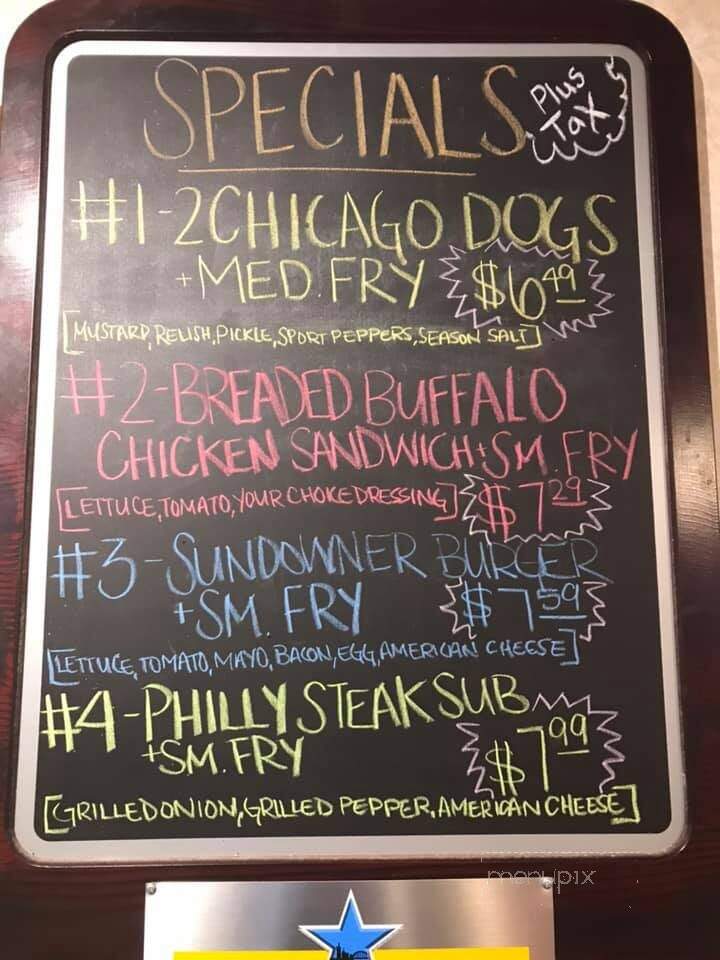 SPECIALS
Plus
Tax
#1-2 CHICAGO DOGS
+MED. FRY $6.49
[MUSTARD, RELISH, PICKLE, SPORT PEPPERS, SEASON SALT]
#2-BREADED BUFFALO
CHICKEN SANDWICH+SM. FRY
[LETTUCE, TOMATO, YOUR CHOICE DRESSING] $7.29
#3-SUNDOWNER BURGER
+SM. FRY $7.59
[LETTUCE, TOMATO, MAYO, BACON, EGG, AMERICAN CHEESE]
#4-PHILLY STEAK SUB
+SM. FRY $7.99
[GRILLED ONION, GRILLED PEPPER, AMERICAN CHEESE]
menupix